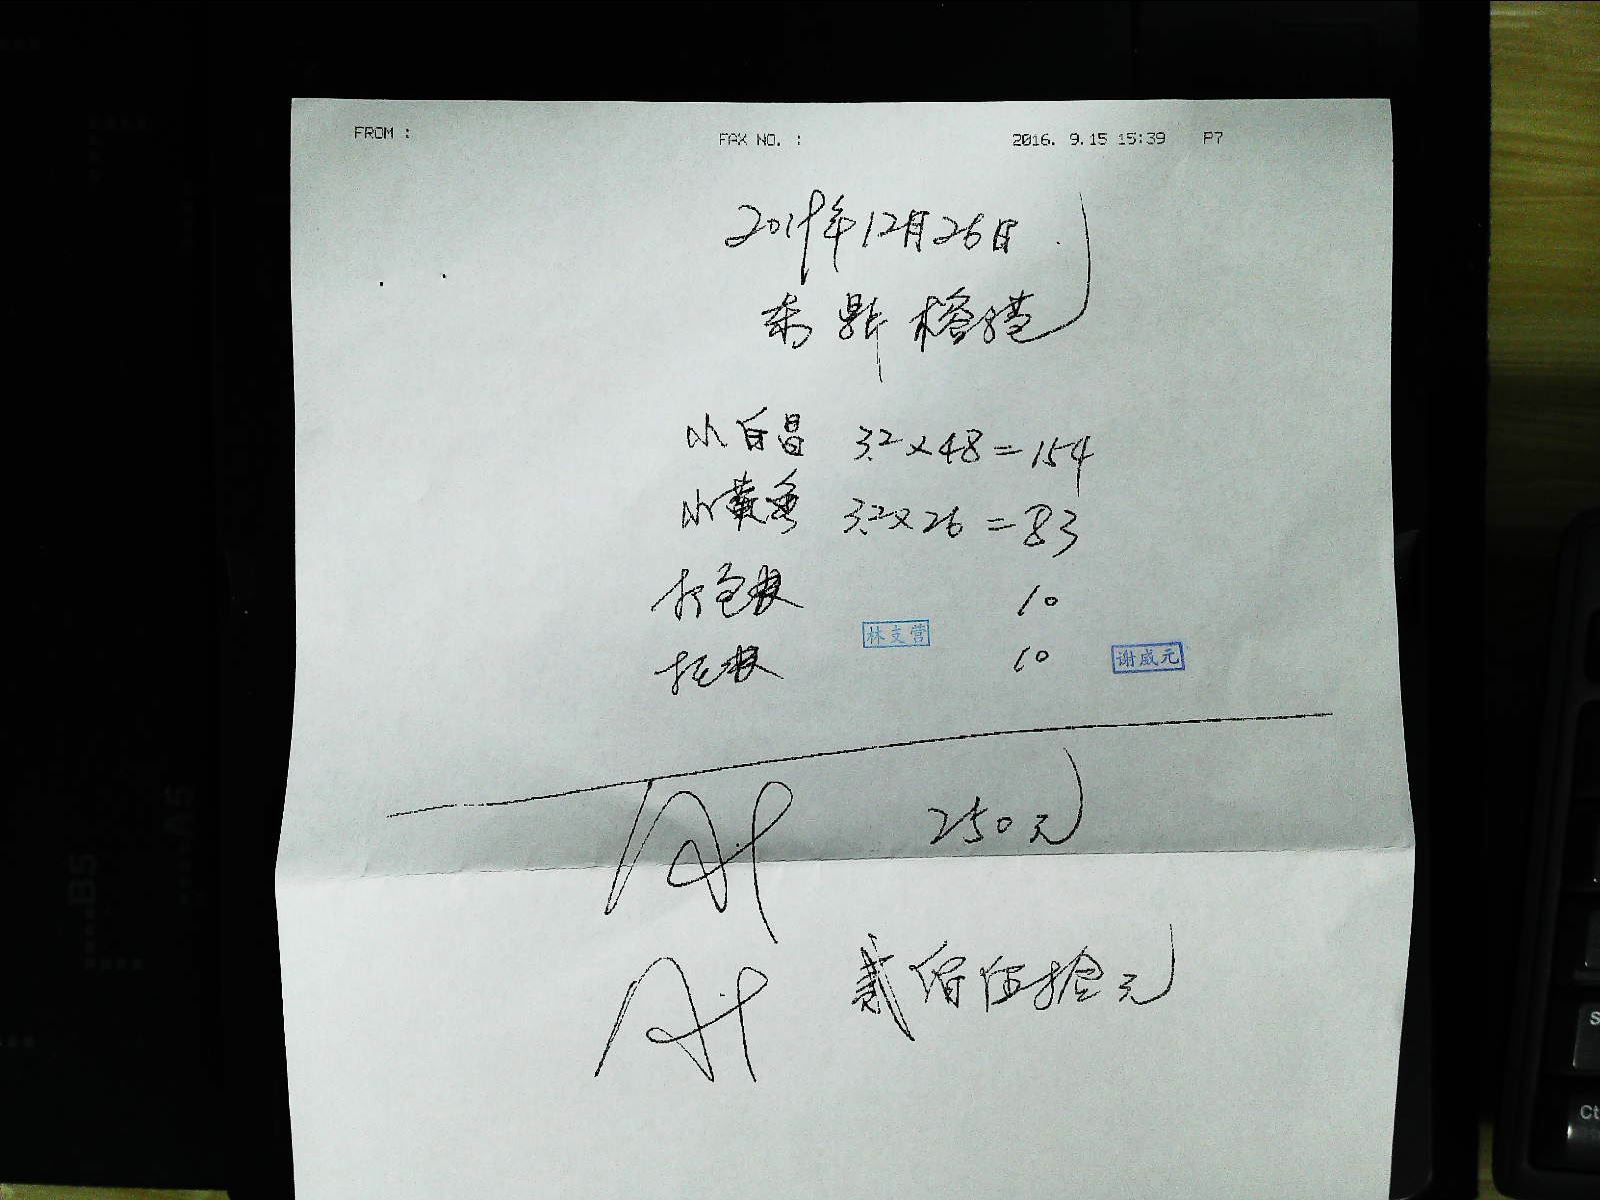 FROM : FAX NO. : 2016. 9.15 15:39 P7
2019年12月26日
小白昌 3.2×48=154
小黄鱼 3.2×26=83
打包费 10
林支营
托费 10
谢威元
250元
贰佰伍拾元
B5
A5